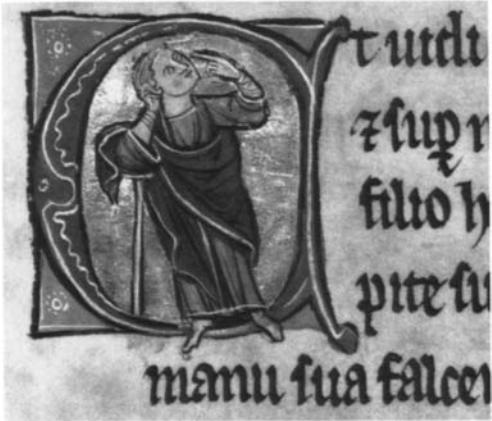 Et uidi
⁊ suꝑ n
filio h
pite su
manu sua falcem